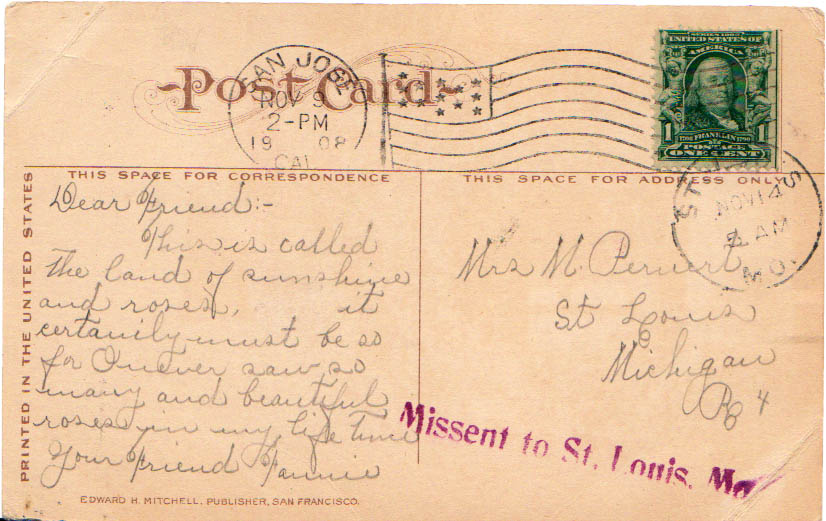 Post Card
SAN JOSE
NOV 9
2-PM
1908
CAL
SERIES 1902
UNITED STATES OF
AMERICA
1 1706 FRANKLIN 1790 1
POSTAGE
ONE CENT
THIS SPACE FOR CORRESPONDENCE
THIS SPACE FOR ADDRESS ONLY
PRINTED IN THE UNITED STATES
Dear Friend:-
This is called
the land of sunshine
and roses, it
certainily must be so
for I never saw so
many and beautiful
roses in my life time
Your Friend Fannie
ST S
NOV 14
AM
MO.
Mrs M.
St Louis
Michigan
R 4
Missent to St. Louis, Mo
EDWARD H. MITCHELL, PUBLISHER, SAN FRANCISCO.